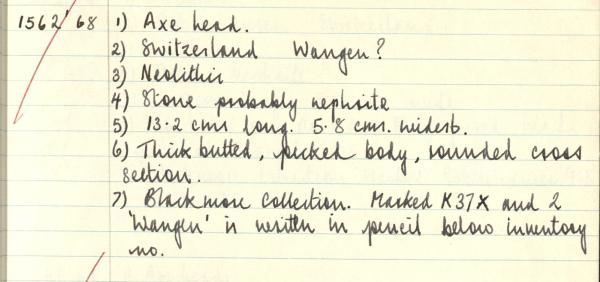 1562'68 1) Axe head.
2) Switzerland Wangen?
3) Neolithic
4) Stone probably nephrite
5) 13.2 cms long. 5.8 cms. widest.
6) Thick butted, pecked body, rounded cross
section.
7) Blackmore Collection. Marked K37X and 2
'Wangen' is written in pencil below inventory
no.